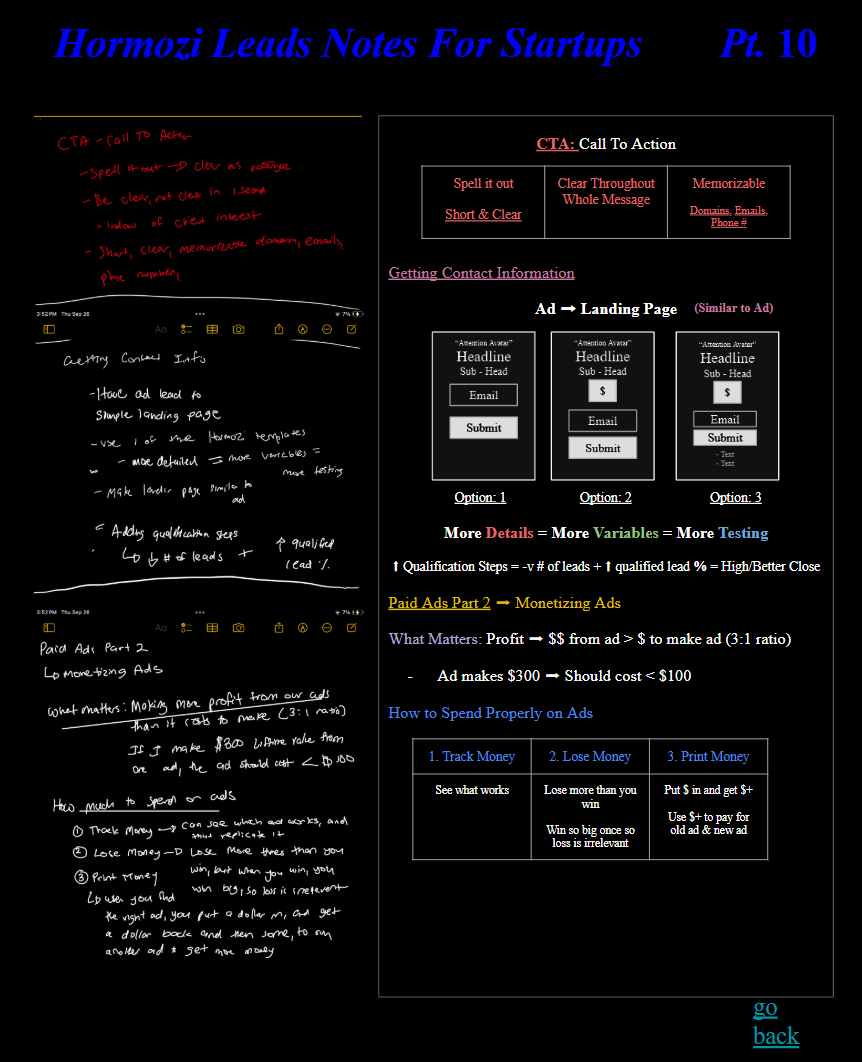 Hormozi Leads Notes For Startups Pt. 10
CTA - Call To Action
- Spell it out → clear as possible
- Be clear, not clear in 1 second
window of client interest
- Short, clear, memorizable domains, emails,
phone numbers,
3:52 PM Thu Sep 26
7%
Aa
Getting Contact Info
- Have ad lead to
simple landing page
- use 1 of the Hormozi templates
- more detailed = more variables =
more testing
- Make lander page similar to
ad
Adding qualification steps
↳ ↓ # of leads + ↑ qualified
lead %
3:52 PM Thu Sep 26
7%
Aa
Paid Ads Part 2
↳ Monetizing Ads
what matters: Making more profit from our ads
than it costs to make (3:1 ratio)
If I make $300 Lifetime value from
one ad, the ad should cost < $100
How much to spend on ads
① Track Money → can see which ad works, and
thus replicate it
② Lose Money → Lose more times than you
win, but when you win, you
win big, so loss is irrelevant
③ Print Money
↳ when you find
the right ad, you put a dollar in, and get
a dollar back and then some, to run
another ad & get more money
CTA: Call To Action
Spell it out
Short & Clear
Clear Throughout
Whole Message
Memorizable
Domains, Emails,
Phone #
Getting Contact Information
Ad → Landing Page (Similar to Ad)
"Attention Avatar"
Headline
Sub - Head
Email
Submit
Option: 1
"Attention Avatar"
Headline
Sub - Head
$
Email
Submit
Option: 2
"Attention Avatar"
Headline
Sub - Head
$
Email
Submit
- Text
- Text
Option: 3
More Details = More Variables = More Testing
⬆ Qualification Steps = -v # of leads + ⬆ qualified lead % = High/Better Close
Paid Ads Part 2 → Monetizing Ads
What Matters: Profit → $$ from ad > $ to make ad (3:1 ratio)
- Ad makes $300 → Should cost < $100
How to Spend Properly on Ads
1. Track Money
2. Lose Money
3. Print Money
See what works
Lose more than you
win
Win so big once so
loss is irrelevant
Put $ in and get $+
Use $+ to pay for
old ad & new ad
go
back